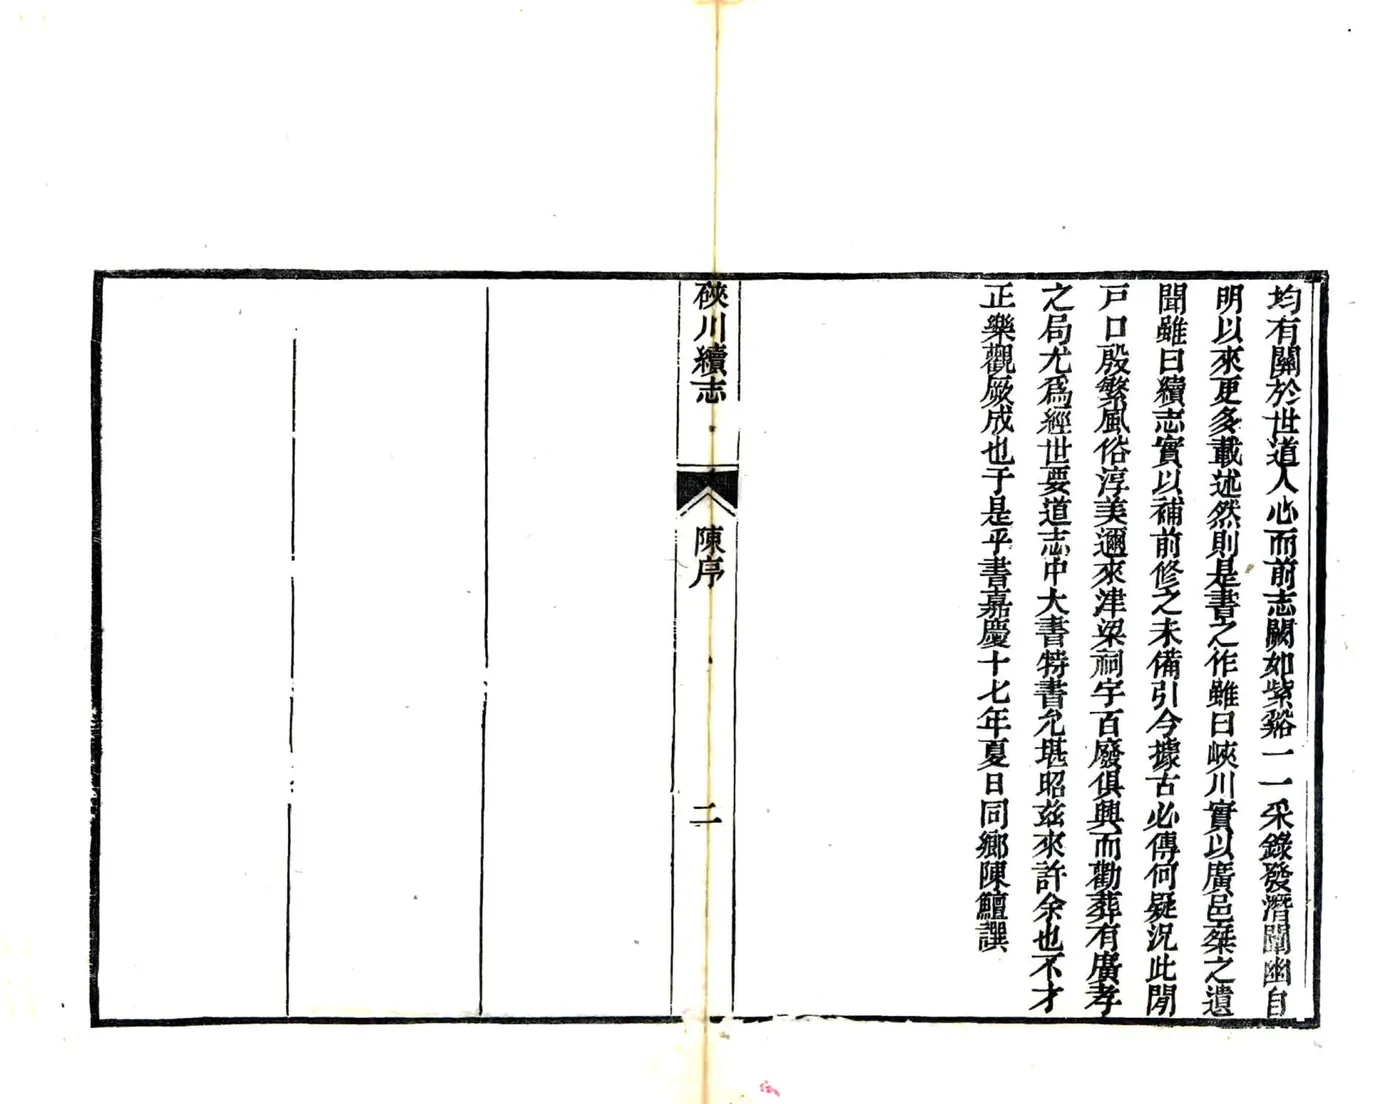 均有關於世道人心而前志闕如紫谿一一采錄發潛闡幽自
明以來更多載述然則是書之作雖曰峽川實以廣邑乘之遺
聞雖曰續志實以補前修之未備引今據古必傳何疑況此閒
戸口殷繁風俗淳美邇來津梁祠宇百廢俱興而勸葬有廣孝
之局尤爲經世要道志中大書特書允堪昭茲來許余也不才
正樂觀厥成也于是乎書嘉慶十七年夏日同鄉陳鱣譔
硤川續志
陳序
二